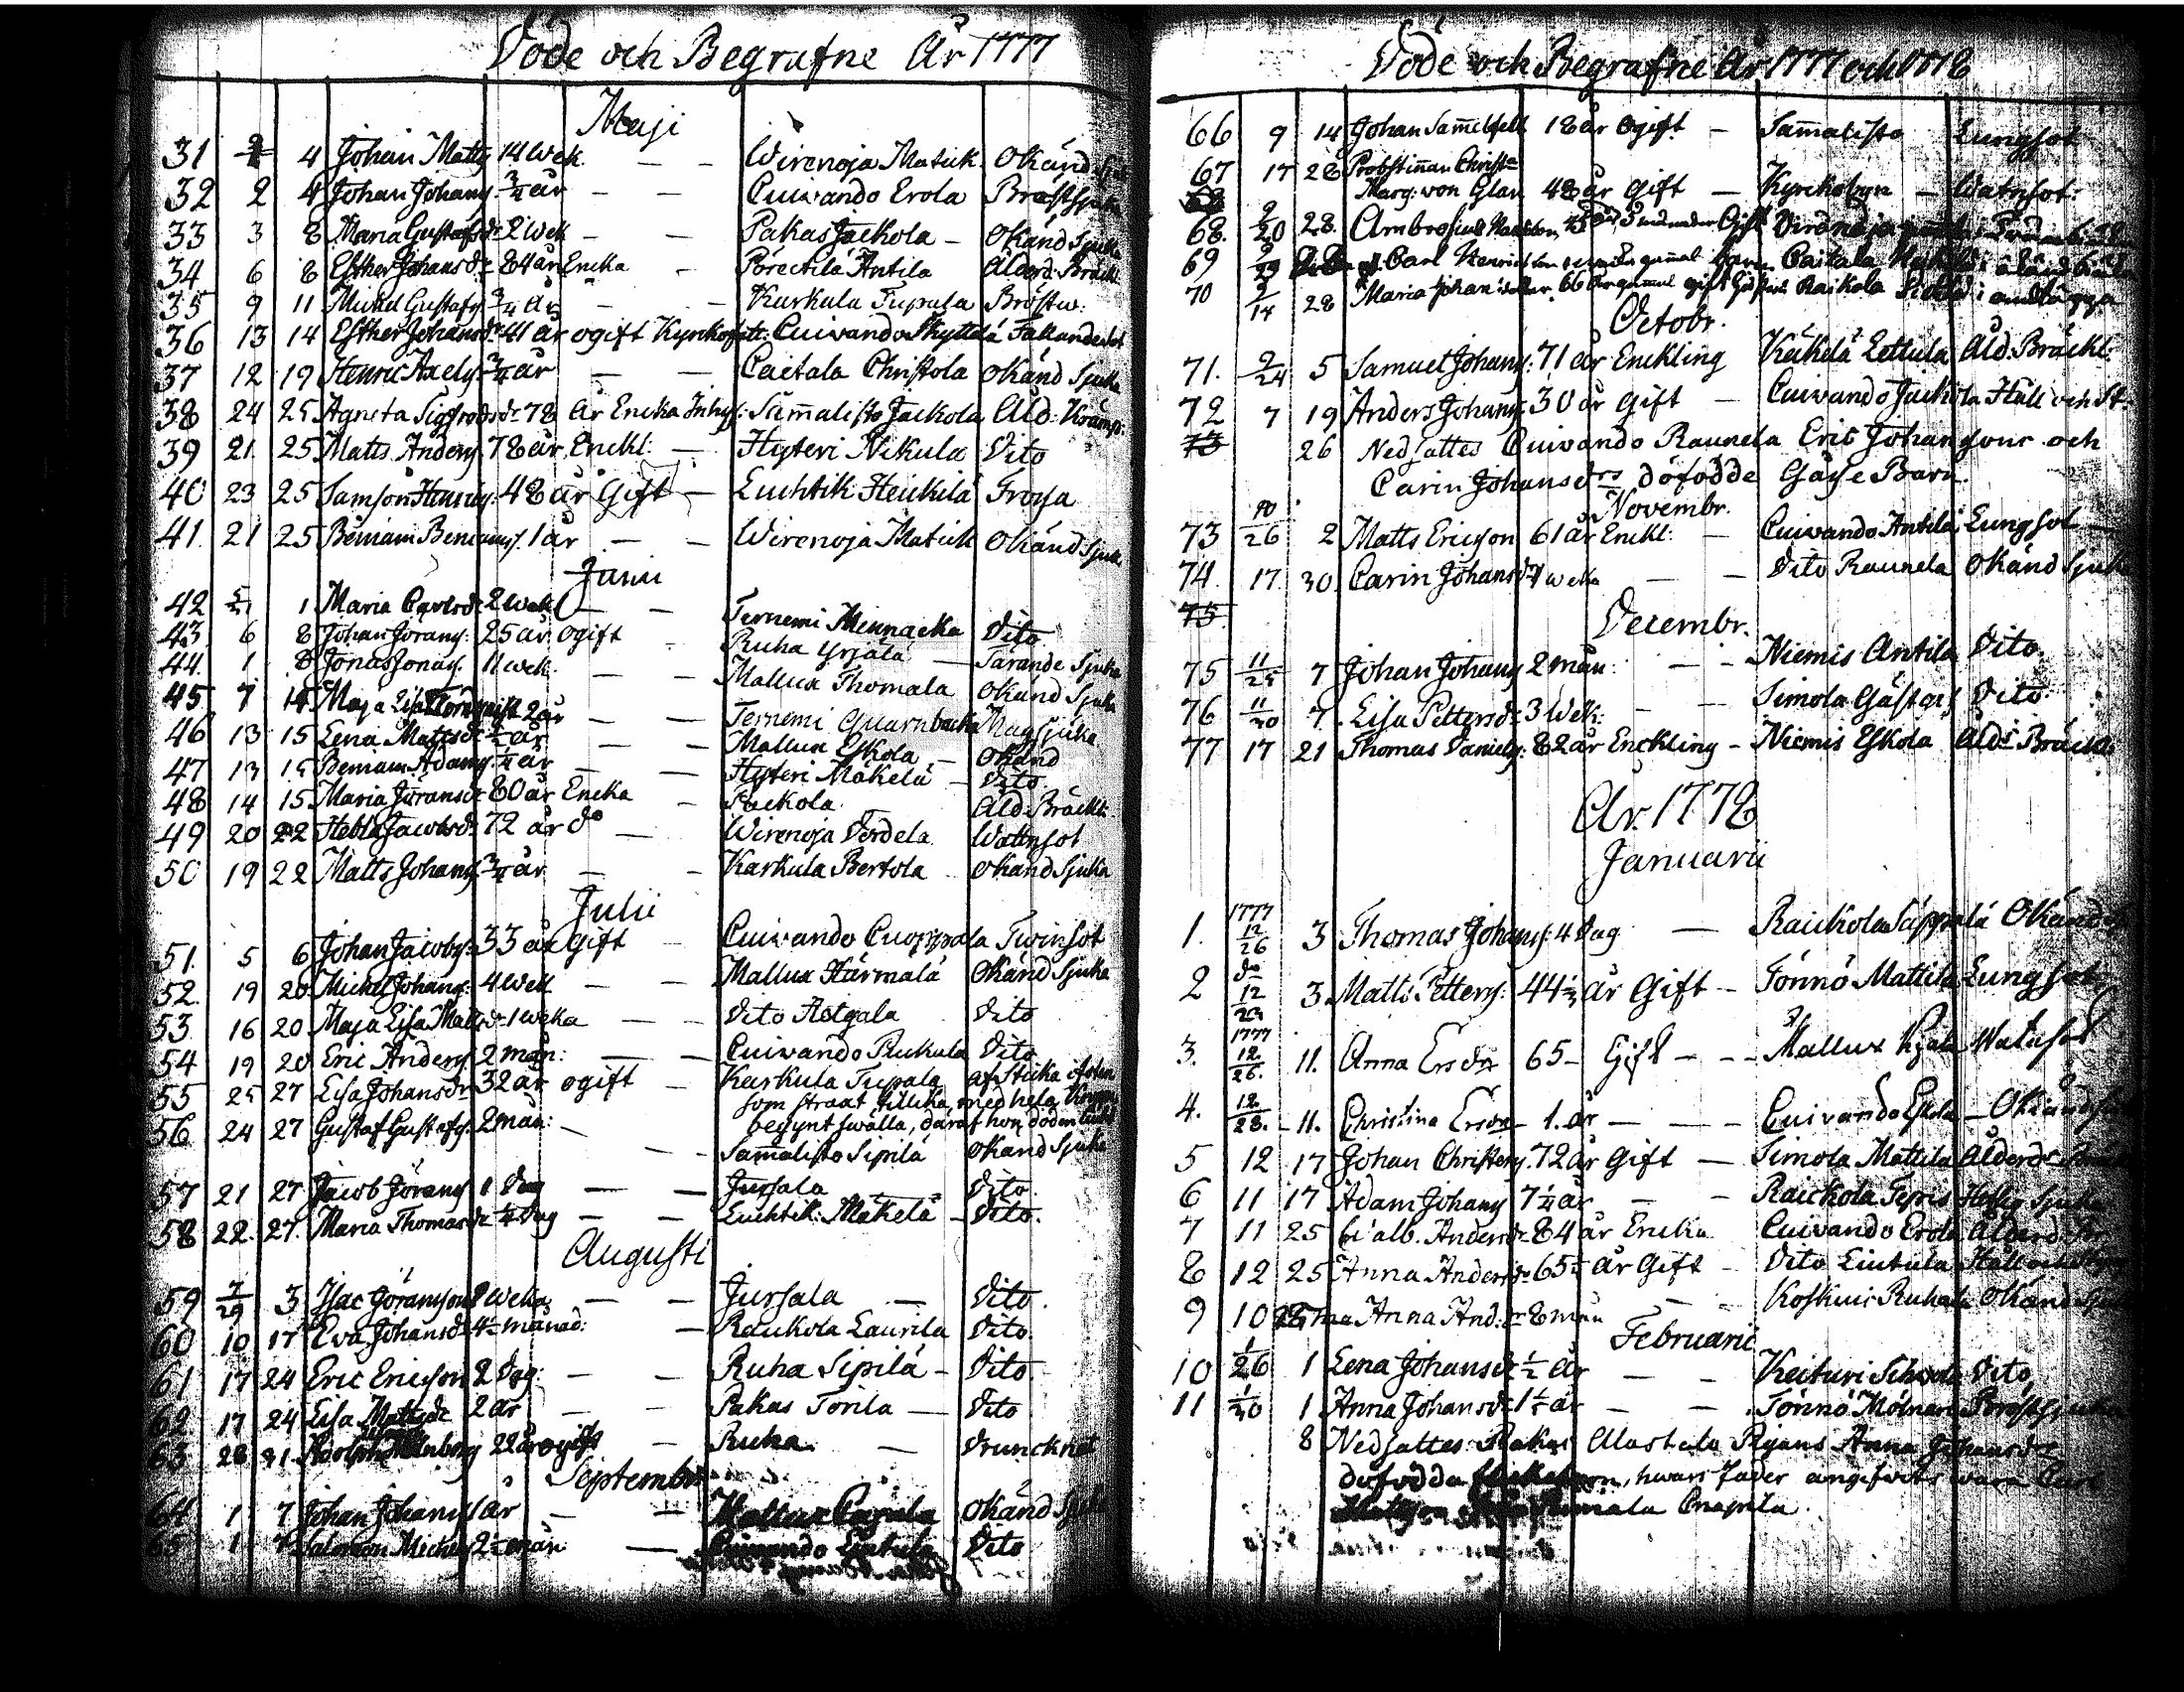 Döde och Begrafne År 1777
Maji
31 2 4 Johan Matts: 14 wek. — — Wirenoja Matuk. Okänd Sjuk
32 2 4 Johan Johans: 3/4 år — — Cuivando Erola Bröstsjuka
33 3 8 Maria Gustafsdr 2 Wek — — Pakas Jackola — Okänd Sjuka
34 6 8 Esther Johansdr 84 år Encka — Antila Ålderd: Bräckl:
35 9 11 Michel Gustafs: 3/4 år — — Karkula Tupala Bröstw:
36 13 14 Esther Johansdr 41 år ogift Cuivando Skyttälä Fallandesot
37 12 19 Henric Axels: 3/4 år — — Caitala Christola Okänd Sjuka
38 24 25 Agneta Sigfredsdr 78 år Encka Inhys: Sam̄alisto Jackola Åld: Krämp:
39 21. 25 Matts Anders. 78 år Enckl: — Hyteri Nikula Dito
40 23 25 Samson Henrics: 48 år Gift — Luchtik Heickilä Frossa
41. 21 25 Beniam Beniams. 1 år — — Wirenoja Matuk Okänd Sjuka
Junii
42 1 Maria Carlsdr 2 Wek — — Ternemi Dito
43. 6 8 Johan Jörans: 25 år ogift — Ruha Yrjälä — Tärande Sjuka
44. 1 8 Jonas Jonas. 11 wek. — — Mallux Thomala Okänd Sjuk
45 7 15 Maja Lisa 2 år — — Ternemi Quarnbacka Magsjuka
46 13 15 Lena Mattsdr 1/2 år — — Mallux Eskola — Okänd
47 13 15 Beniam Adams. 1/4 år — — Hyteri Mäkelä — Dito
48 14 15 Maria Jöransdr 80 år Encka — Jackola Åld: Bräckl:
49 20 22 Hebla Jacobsdr 72 år do — Wirenoja Tordela Wattusot
50 19 22 Matts Johans. 3/4 år — — Karkula Bertola Okänd Sjuka
Julii
51. 5 6 Johan Jacobs: 33 år Gift — Cuivando Cuoppala Twinsot
52. 19 20 Michel Johans: 4 Wek — — Mallux Härmälä Okänd Sjuka
53 16 20 Maja Lisa Mattsdr 1 weka — — Dito Astgala Dito
54 19 20 Eric Anders. 2 mån: — — Cuivando Ruckula Dito
55 25 27 Lisa Johansdr 32 år ogift — Karkula Tupala af Sticka i foten
som straxt tillika med hela Kroppen
begynt swälla, däraf hon döden
56 24 27 Gustaf Gustafs. 2 mån: — — Sam̄alisto Sipilä Okänd Sjuka
57 21 27 Jacob Jörans 1 Dag — — Jursala Dito
58 22. 27. Maria Thomasdr 1/4 Dag — — Luchtik: Mäkelä — Dito.
Augusti
59 7/29 3 Isac Göransson weka — — Jursala — Dito.
60 10 17 Eva Johansdr 4 månad: — Raukola Laurila Dito
61 17 24 Eric Ericsson 2 Dag: — — Ruha Sipilä — Dito
62 17 24 Lisa 2 år — — Pakas Torila — Dito
63 28 31 Adolph 22 år ogift — Ruha — Druncknat
Septembr.
64 1 7 Johan Johans 1 år — — Mallux Okänd Sjuka
65 1 7 Salomon Michels 2 1/2 mån — Cuivando Liutula Dito
Döde och Begrafne År 1777 och 1778
66 9 14 Johan 18 år Ogift — Sam̄alisto Lungsot
67 17 28 Probstinnan Christ
Marg: von Glan 48 år Gift — Kyrckobyn — Watnsot:
68. 9/20 28. Ambrosius Gift
69 Carl Henricsson gammal barn Caitala
70 9/14 28 Maria Johansdotter 66 år gammal gift Raikola
Octobr.
71. 9/24 5 Samuel Johans: 71 år Enckling Keikelä Lettula Åld: Bräckl:
72 7 19 Anders Johans. 30 år Gift — Cuivando Jackola Håll och St:
73 26 Nedsattes Cuivando Raunela Eric Johanssons och
Carin Johansdrs döfödde Gåsse Barn.
Novembr.
73 10/26 2 Matts Ericsson 61 år Enckl: — Cuivando Antila Lungsot —
74. 17. 30. Carin Johansdr weka — — Dito Raunela Okänd Sjuka
75
Decembr.
75 11/25 7 Johan Johans 2 mån: — — Niemis Antila Dito
76 11/30 7. Lisa Pettersdr 3 Wek: — — Simola Gästgs Dito.
77 17 21 Thomas Daniels: 82 år Enckling — Niemis Eskola Åldr Bräckl:
År. 1778
Januarii
1. 1777 12/26 3 Thomas Johans: 4 Dag — Raickola Säppälä Okänd
2 do 12/23 3. Matts Petters: 44 1/2 år Gift — Tönnö Mattila Lungsot
3. 1777 12/26. 11. Anna Ersdr 65 — Gift — — Mallux Watusot
4. 12/28. — 11. Christina Ersdr — 1. år — — Cuivando Eskola — Okänd
5 12 17 Johan Christers. 72 år Gift — Simola Mattila Ålderdr
6 11 17 Adam Johans 7 1/4 år — — Raickola Tepris Heftig Sjuka
7 11 25 Andersdr 84 år Encka Cuivando Erola Ålderd:
8 12 25 Anna Andersdr 65 1/2 år Gift — Dito Liutula Håll och Styng
9 10 25 Anna And:dr 8 mån — — Koskuis Ruhala Okänd Sjuka
Februarii
10 1/26 1 Lena Johansdr 1/2 år — — Keituri Dito
11 1/30 1 Anna Johansdr 1 1/2 år — — Tönnö Mölnare Bröstsjuka
8 Nedsattes Anna Johansdrs
döfödda, hwars fader angifwits wara Carl